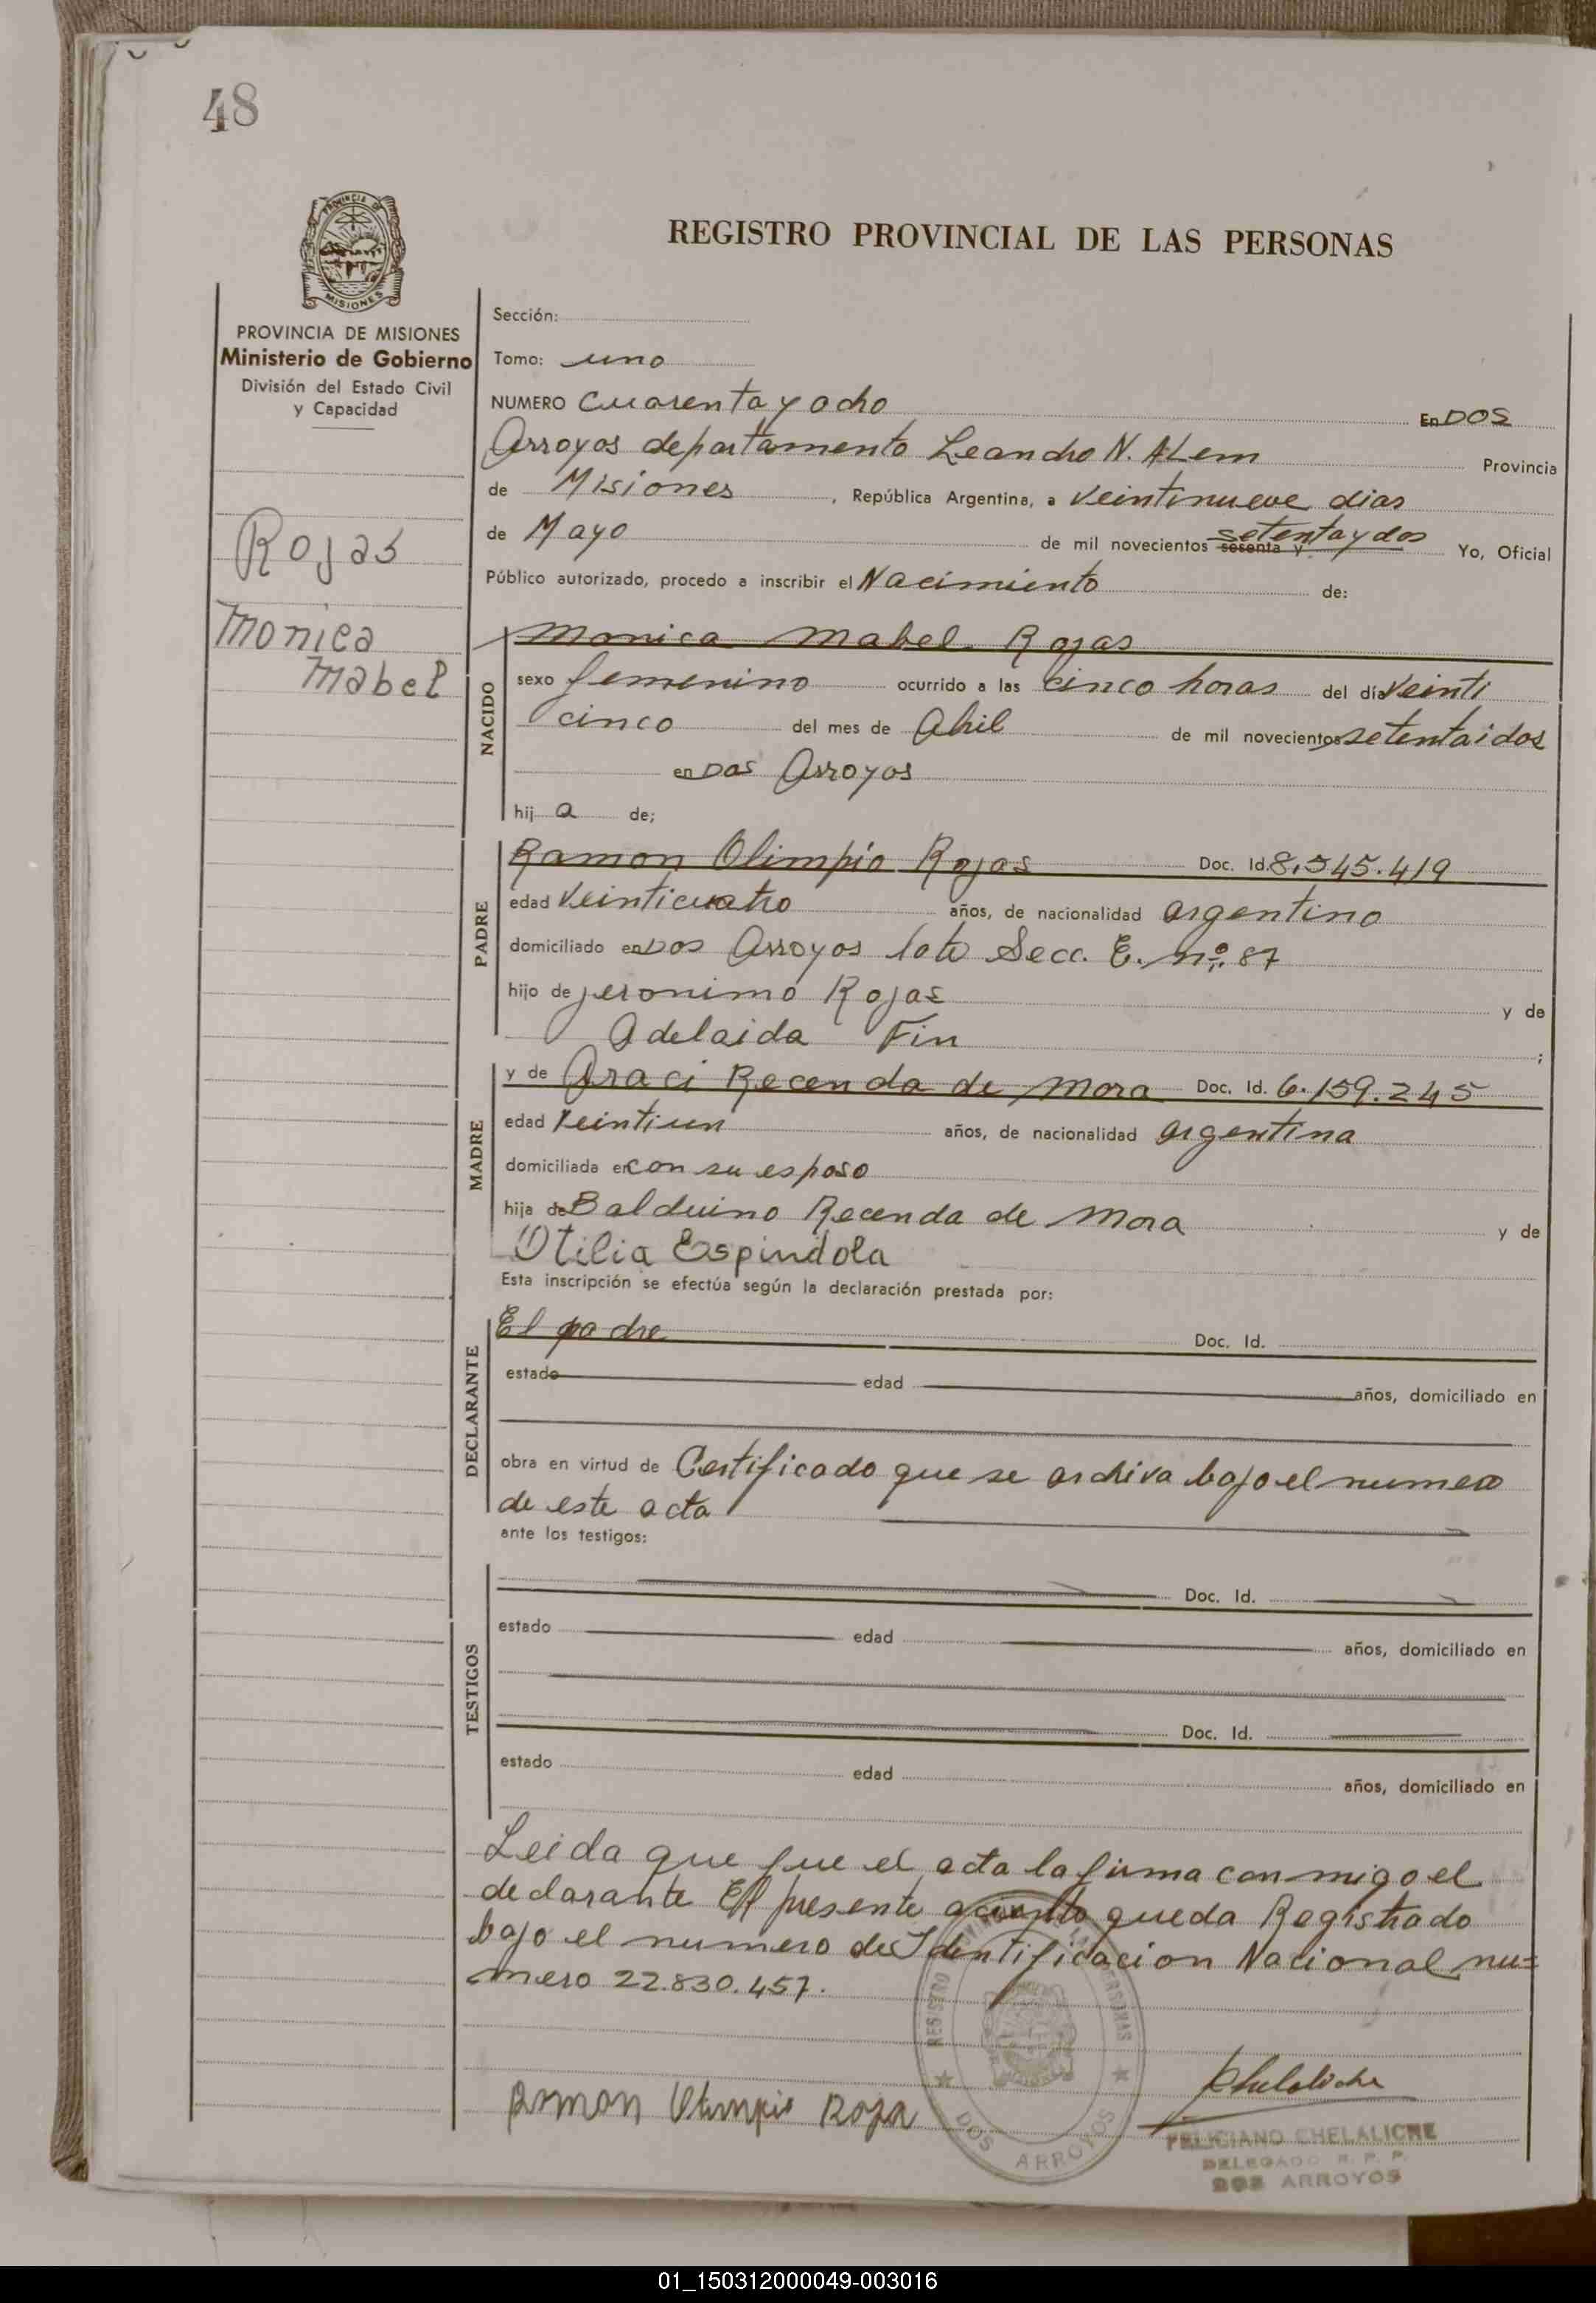 48
PROVINCIA DE
MISIONES
REGISTRO PROVINCIAL DE LAS PERSONAS
PROVINCIA DE MISIONES
Ministerio de Gobierno
División del Estado Civil
y Capacidad
Rojas
Monica
Mabel
Sección:
Tomo: uno
NUMERO Cuarenta y ocho En DOS
Arroyos departamento Leandro N. ALem Provincia
de Misiones, República Argentina, a veintinueve dias
de Mayo de mil novecientos sesenta y setenta y dos Yo, Oficial
Público autorizado, procedo a inscribir el Nacimiento de:
NACIDO
Monica Mabel Rojas
sexo femenino ocurrido a las cinco horas del día veinti
cinco del mes de Abril de mil novecientos setenta i dos
en Dos Arroyos
hij a de;
PADRE
Ramon Olimpio Rojas Doc. Id. 8.545.419
edad veinticuatro años, de nacionalidad argentino
domiciliado en Dos Arroyos lote Secc. E. nº: 87
hijo de jeronimo Rojas y de
Adelaida Fin ;
MADRE
y de Araci Recenda de Mora Doc. Id. 6.159.245
edad veintiun años, de nacionalidad argentina
domiciliada en con su esposo
hija de Balduino Recenda de Mora y de
Otilia Espindola
Esta inscripción se efectúa según la declaración prestada por:
DECLARANTE
El padre Doc. Id.
estado edad años, domiciliado en
obra en virtud de Certificado que se archiva bajo el numero
de este acta
ante los testigos:
TESTIGOS
Doc. Id.
estado edad años, domiciliado en
Doc. Id.
estado edad años, domiciliado en
Leida que fue el acta la firma con migo el
declarante El presente aciento queda Registrado
bajo el numero de Identificacion Nacional nu=
mero 22.830.457.
Ramon Olimpio Roja
REGISTRO PERSONAS
DOS ARROYOS
Chelaliche
FELICIANO CHELALICHE
DELEGADO R. P. P.
DOS ARROYOS
01_150312000049-003016